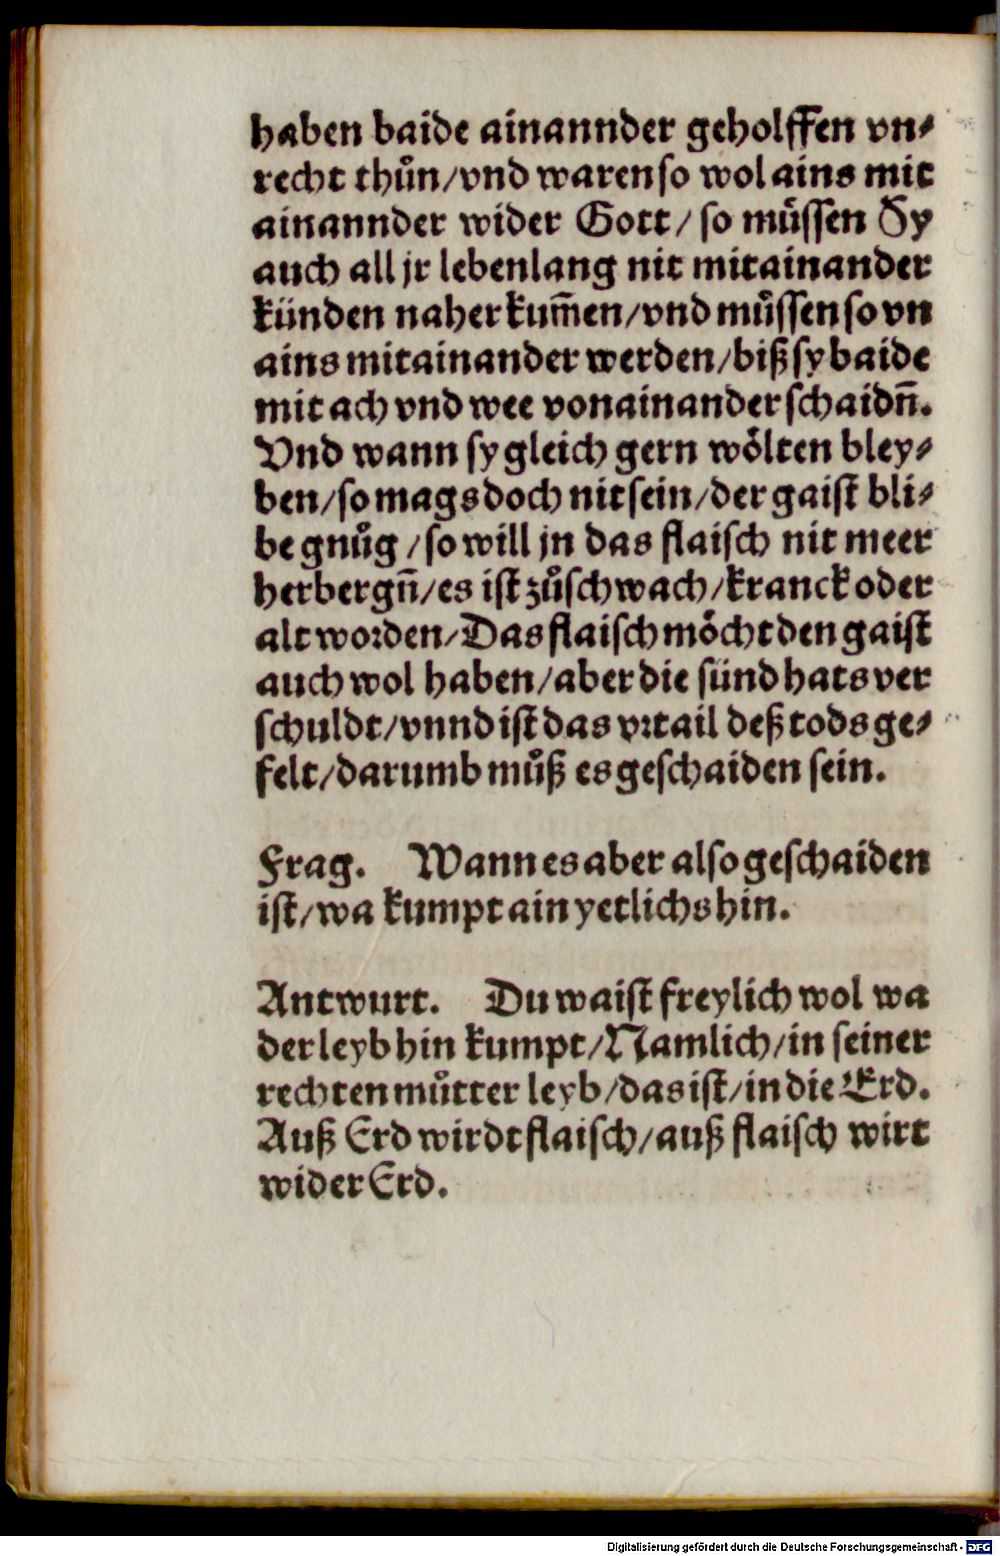 haben baide ainannder geholffen vn⸗
recht thůn/vnd waren so wol ains mit
ainannder wider Gott/ so můssen Sy
auch all jr lebenlang nit mitainander
künden naher kum̃en/vnd můssen so vn
ains mitainander werden/biß sy baide
mit ach vnd wee vonainander schaidñ.
Vnd wann sy gleich gern wölten bley⸗
ben/so mags doch nit sein/der gaist bli⸗
be gnůg /so will jn das flaisch nit meer
herbergñ/es ist zůschwach/kranck oder
alt worden/Das flaisch möcht den gaist
auch wol haben/aber die sünd hats ver
schuldt/vnnd ist das vrtail deß tods ge⸗
felt/darumb můß es geschaiden sein.
Frag. Wann es aber also geschaiden
ist/wa kumpt ain yetlichs hin.
Antwurt. Du waist freylich wol wa
der leyb hin kumpt/Namlich/in seiner
rechten můtter leyb/das ist/in die Erd.
Auß Erd wirdt flaisch/auß flaisch wirt
wider Erd.
Digitalisierung gefördert durch die Deutsche Forschungsgemeinschaft - DFG